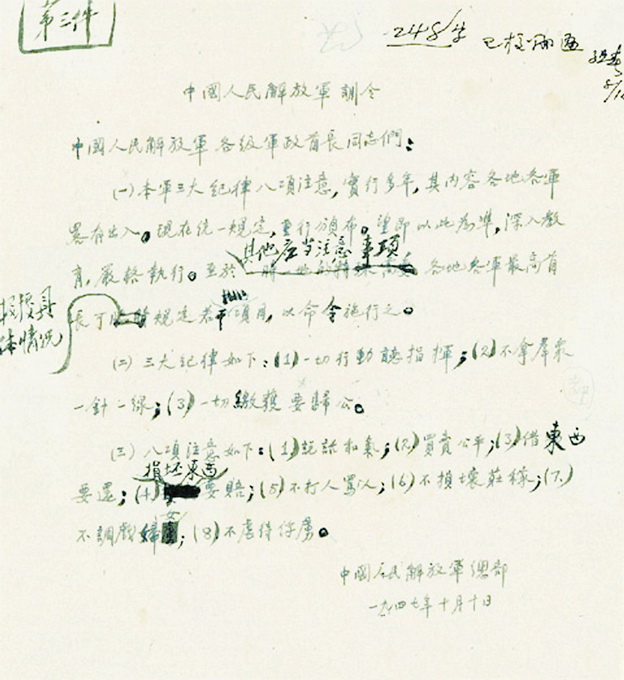 第三件
248号
中國人民解放軍訓令
中國人民解放軍各级軍政首長同志們：
(一)本軍三大紀律八項注意，實行多年，其内容各地各軍
畧有出入。現在统一規定，重行頒布。望即以此為準，深入教
其他应当注意事項
育，嚴格執行。至於各地各軍最高首
按照具
体情况
長可規定若干項目，以命令施行之。
(二)三大紀律如下：(1)一切行動聽指揮；(2)不拿羣衆
一針一線；(3)一切繳獲要歸公。
(三)八項注意如下：(1)説話和氣；(2)買賣公平；(3)借東西
損坯東西
要還；(4)要賠；(5)不打人罵人；(6)不損壞莊稼；(7)
不調戲婦女；(8)不虐待俘虜。
中國人民解放軍總部
一九四七年十月十日